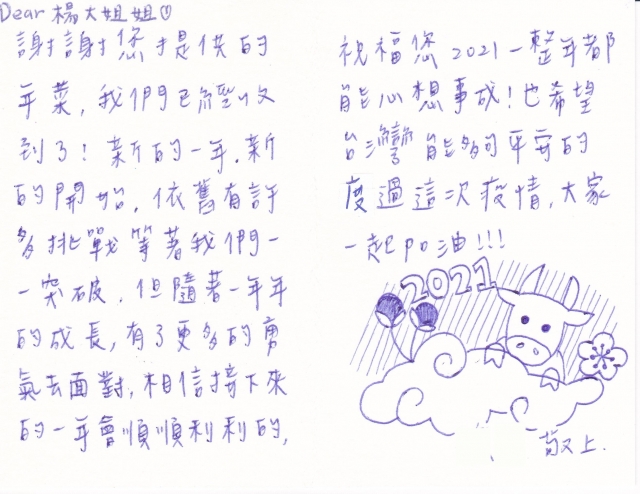 Dear 楊大姐姐♡
謝謝您提供的
年菜,我們已經收
到了!新的一年,新
的開始,依舊有許
多挑戰等著我們一
一突破,但隨著一年年
的成長,有了更多的勇
氣去面對,相信接下來
的一年會順順利利的,
祝福您2021一整年都
能心想事成!也希望
台灣能夠平安的
度過這次疫情,大家
一起加油!!!
2021
敬上.